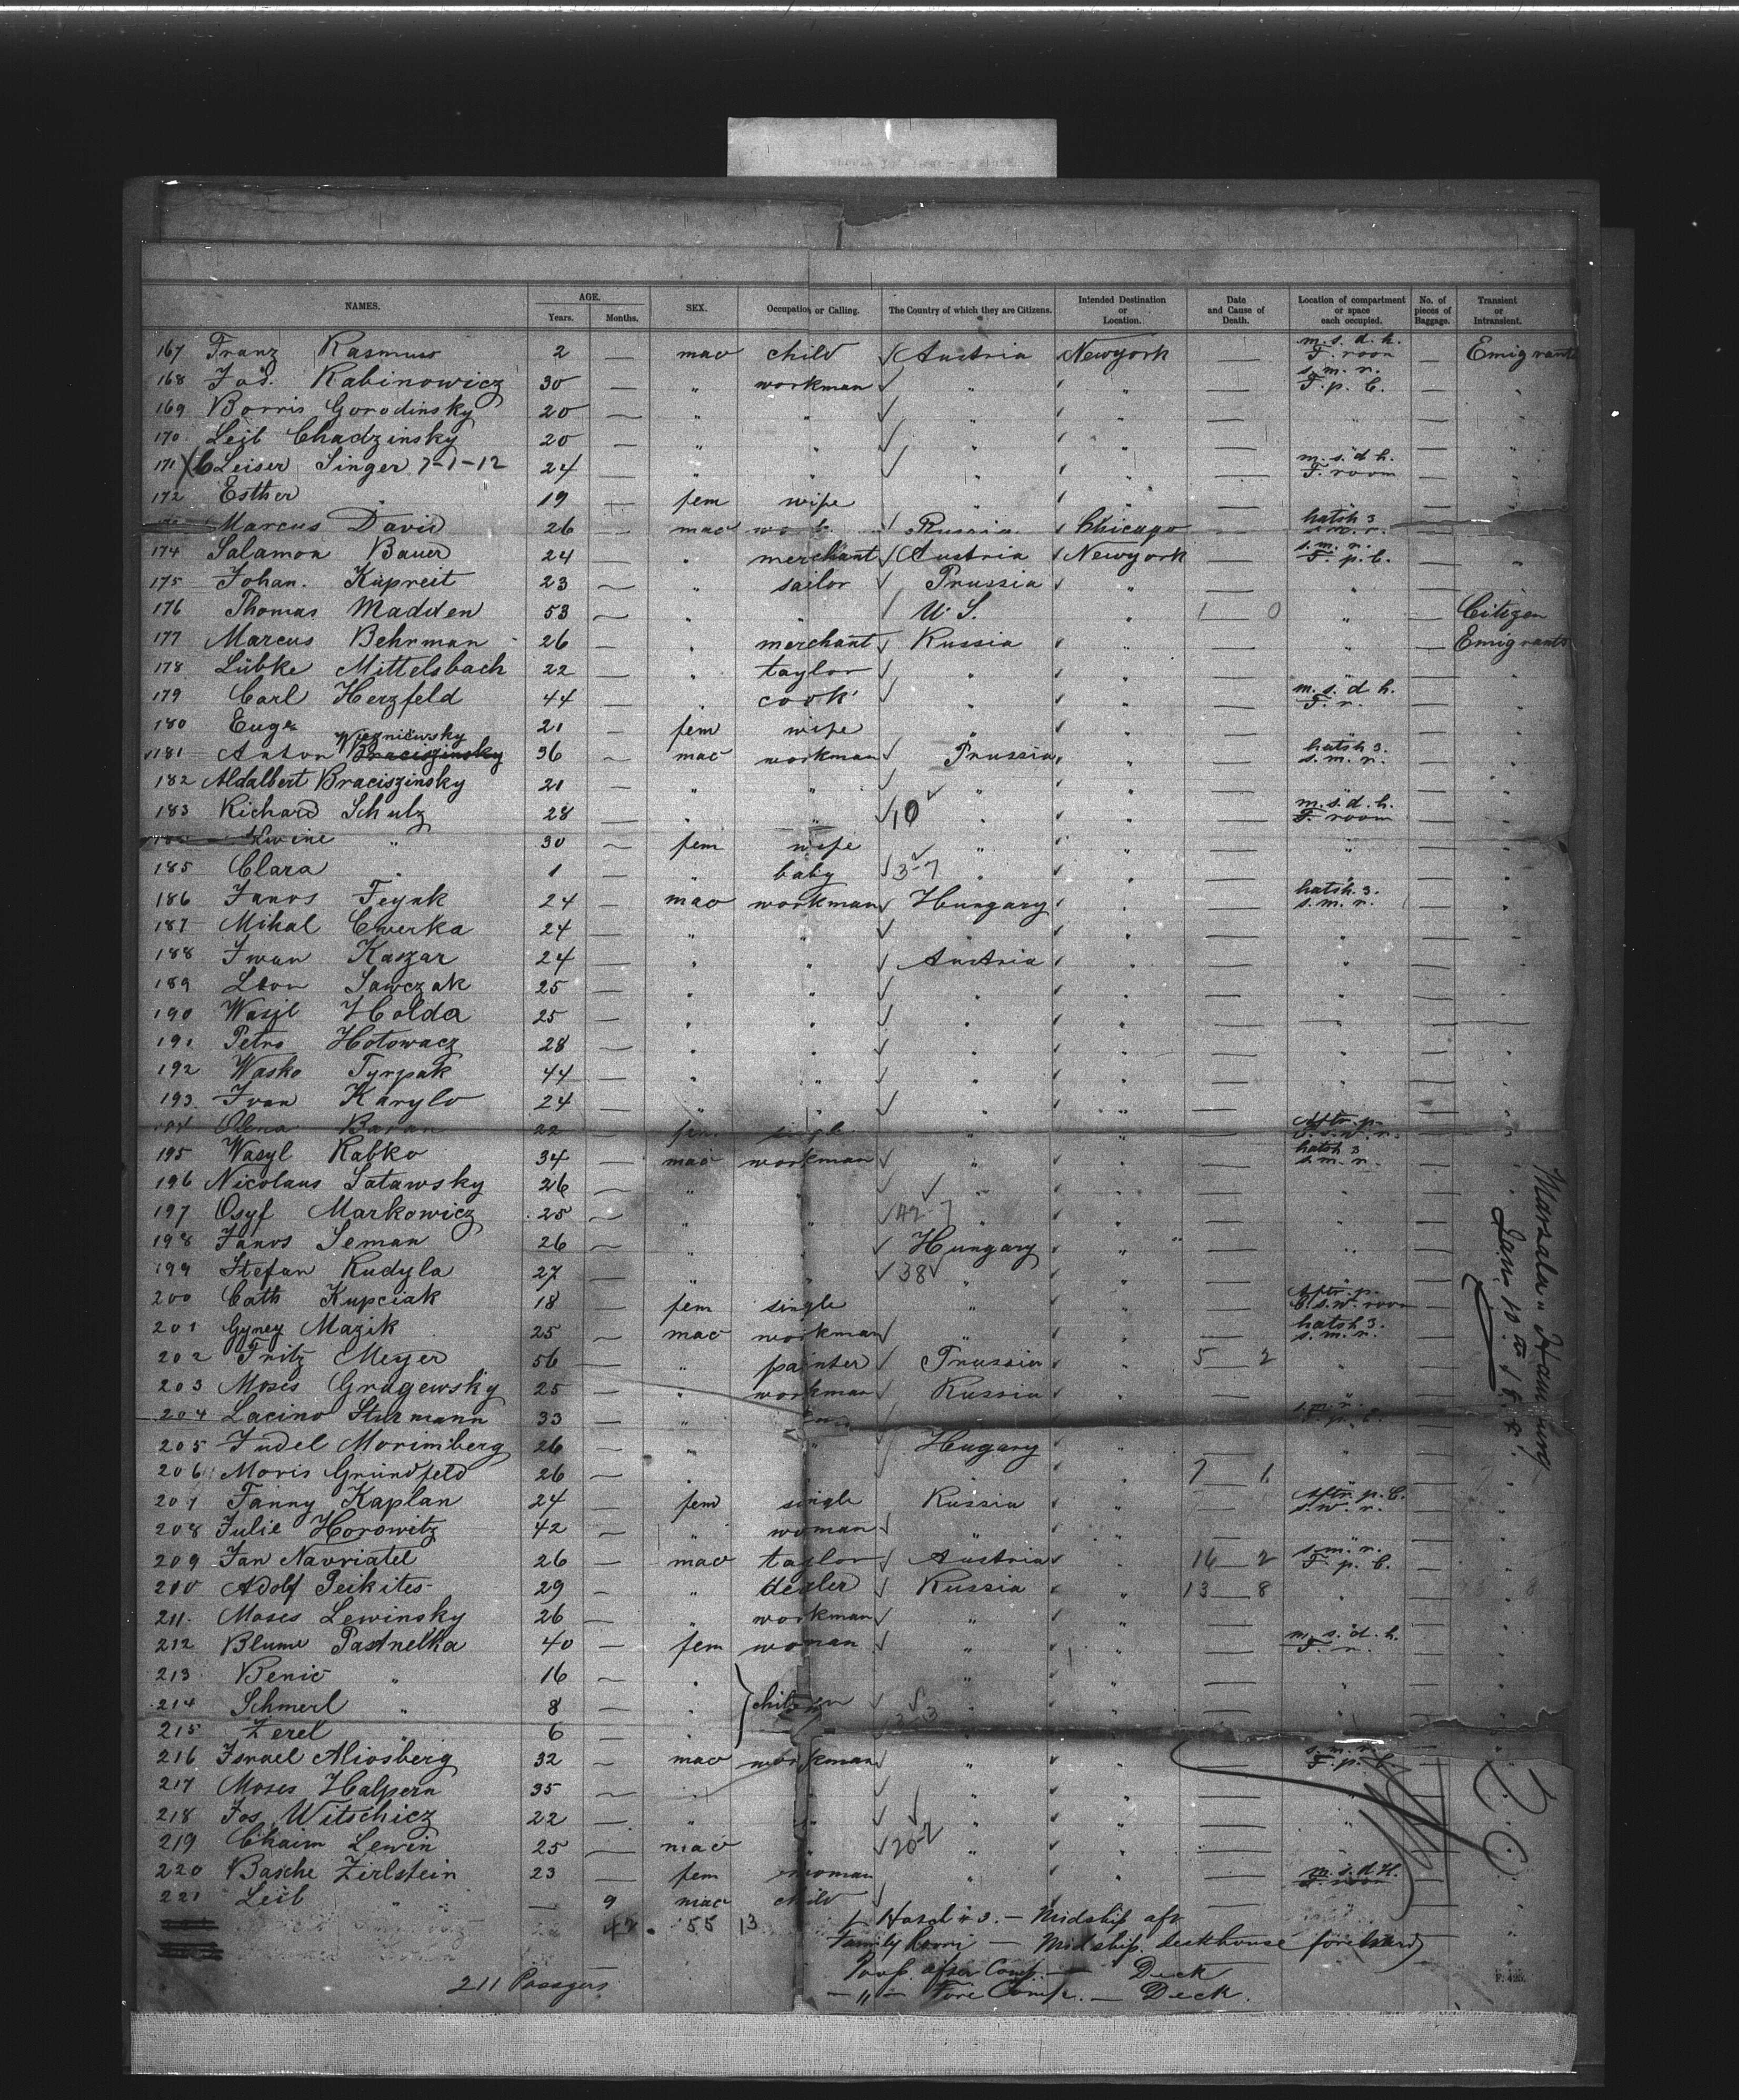 NAMES. AGE. Years. Months. SEX. Occupation or Calling. The Country of which they are Citizens. Intended Destination or Location. Date and Cause of Death. Location of compartment or space each occupied. No. of pieces of Baggage. Transient or Intransient.
167 Franz Rasmus 2 — mac child ✓ Austria Newyork — m. s. d. h. F. room — Emigrants
168 Jos. Rabinowicz 30 — " workman ✓ " " — s. m. r. F. p. C. — "
169 Borris Gorodinsky 20 — " " ✓ " " — — "
170 Leib Chadzinsky 20 — " " ✓ " " — " — "
171 Leiser Singer 7-1-12 24 — " " ✓ " " — m. s. d. h. F. room — "
172 Esther " 19 — fem wife " " — — "
Marcus David 26 — mac ✓ Russia Chicago — hatsh 3 s. m. r.
174 Salamon Bauer 24 — " merchant ✓ Austria Newyork — s. m. r. F. p. C. — "
175 Johan. Kupreit 23 — " sailor ✓ Prussia " — " — "
176 Thomas Madden 53 — " " ✓ U. S. " 1 — 0 " — Citizen
177 Marcus Behrman 26 — " merchant ✓ Russia " — " — Emigrants
178 Lübke Mittelsbach 22 — " taylor ✓ " " — " — "
179 Carl Herzfeld 44 — " cook ✓ " " — m. s. d. h. F. r. — "
180 Euge 21 — fem wife " " — " — "
Wiezniewsky
181 Anton Braciszinsky 36 — mac workman ✓ Prussia " — hatsh 3. s. m. r. — "
182 Aldalbert Braciszinsky 21 — " " ✓ " " — — "
183 Richard Schulz 28 — " " ✓ 10 " " — m. s. d. h. F. room — "
" 30 — fem wife " " — " — "
185 Clara " 1 — " baby ✓ 3-7 " " — — "
186 Janos Feynk 24 — mac workman ✓ Hungary " — hatsh. 3. s. m. r. — "
187 Mihal Cwerka 24 — " " ✓ " " — " — "
188 Iwan Kaszar 24 — " " ✓ Austria " — " — "
189 Leon Sawczak 25 — " " ✓ " " — " — "
190 Wasil Holda 25 — " " ✓ " " — " —
191 Petro Hotowacz 28 — " " ✓ " " — " — "
192 Wasko Tyrpak 44 — " " ✓ " " — " — "
193. Ivan Karylo 24 — " " ✓ " " — " — "
Olena Baran 22 — fem single " " — Aftr. p. — "
195 Wasyl Rabko 34 — mac workman ✓ " " — hatsh 3 s. m. r. —
196 Nicolaus Satawsky 26 — " " ✓ " " — " — "
197 Osyf Markowicz 25 — " " ✓ 42-7 " " — " —
198 Janos Seman 26 — " " ✓ Hungary " — " —
199 Stefan Rudyla 27 — " " ✓ 38 ✓ " " — " —
200 Cath Kupciak 18 — fem single " " — Aftr. p. C. s. w. room —
201 Gyney Mazik 25 — mac workman ✓ " " — hatsh 3. s. m. r. —
202 Fritz Meyer 56 — " painter ✓ Prussia " 5 — 2 " —
203 Moses Gragewsky 25 — " workman ✓ Russia " — " —
204 Lacino Sturmann 33 — " " — s. m. r. F. p. C. —
205 Judel Morimberg 26 — " " ✓ Hugary " — " — "
206 Moris Grundfeld 26 — " " " 7 — 1 — "
207 Fanny Kaplan 24 — fem single Russia " — Aftr. p. C. s. w. r. — "
208 Julie Horowitz 42 — " woman ✓ " " — " — "
209 Jan Navriatel 26 — mac taylor ✓ Austria " 16 — 2 s. m. r. F. p. C. — "
210 Adolf Peikites 29 — " dealer ✓ Russia " 13 — 8 " — "
211. Moses Lewinsky 26 — " workman ✓ " " — — "
212 Blume Pastnelka 40 — fem woman ✓ " " — m. s. d. h. F. r. — "
213 Benic " 16 — " " " — " — "
214 Schmerl " 8 — " children ✓ " " — " — "
215 Zerel " 6 — " " — — "
216 Israel Aliosberg 32 — mac workman ✓ " " — s. m. r. F. p. C. — "
217 Moses Halpern 35 — " " ✓ " " — "
218 Jos. Witschicz 22 — " " ✓ " " — "
219 Chaim Lewin 25 — mac " ✓ 20-2 " " —
220 Basche Zirlstein 23 — fem woman " " — m. s. d. H. F. room —
221 Leib " — 9 mac child ✓ " —
55 13
Midship aft
Family Room — Midship. deckhouse
— Deck
— " — Fore Comp. — Deck.
211 Passgers
Marsala " Hamburg
Jan. 10